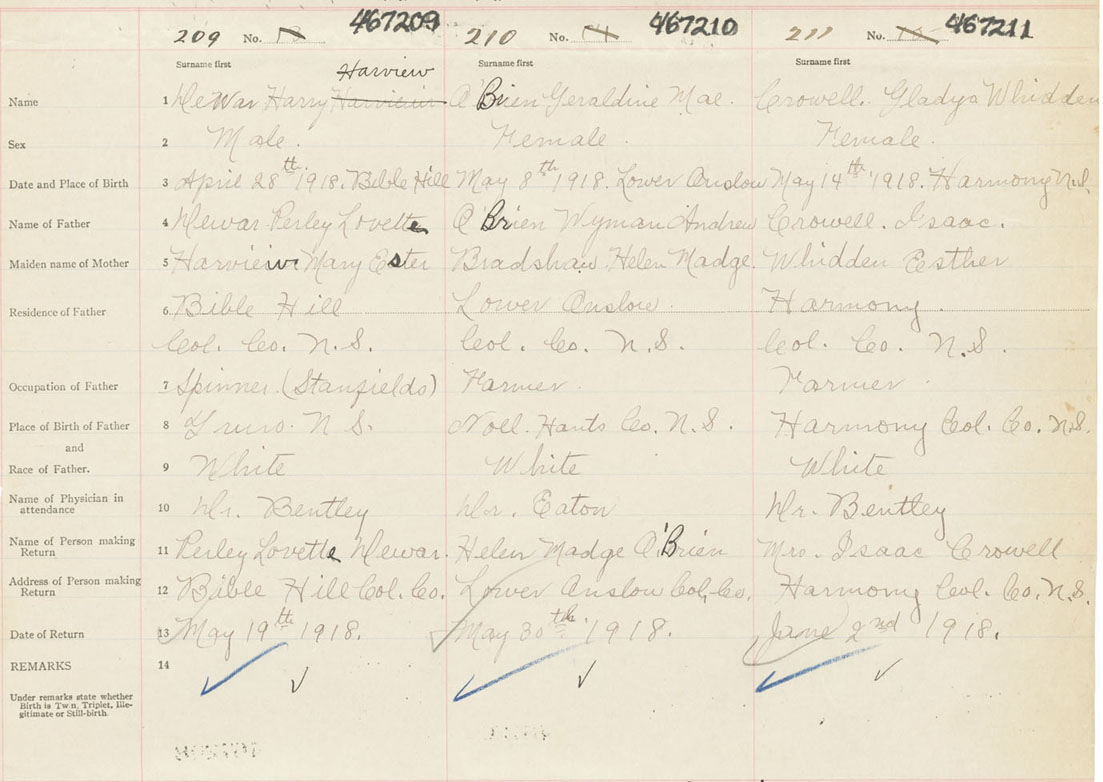 209 No. 13 467209 210 No. 14 467210 211 No. 467211
Surname first Surname first Surname first
Harview
Name 1 Dewar Harry Harvieiw O'Brien Geraldine Mae. Crowell. Gladys Whidden
Sex 2 Male. Female. Female.
Date and Place of Birth 3 April 28th 1918. Bible Hill May 8th 1918. Lower Onslow May 14th 1918. Harmony N.S.
Name of Father 4 Dewar Perley Lovette O'Brien Wyman Andrew Crowell. Isaac.
Maiden name of Mother 5 Harvieiw Mary Ester Bradshaw Helen Madge. Whidden Esther
Residence of Father 6 Bible Hill Lower Onslow. Harmony.
Col. Co. N.S. Col. Co. N.S. Col. Co. N.S.
Occupation of Father 7 Spinner (Stanfields) Farmer. Farmer.
Place of Birth of Father 8 Truro. N S. Noel. Hants Co. N.S. Harmony Col. Co. N.S.
and
Race of Father. 9 White White White
Name of Physician in attendance 10 Dr. Bentley Dr. Eaton Dr. Bentley
Name of Person making Return 11 Perley Lovette Dewar. Helen Madge O'Brien Mrs. Isaac Crowell
Address of Person making Return 12 Bible Hill Col. Co. Lower Onslow Col. Co. Harmony Col. Co. N.S.
Date of Return 13 May 19th 1918. May 30th 1918. June 2nd 1918.
REMARKS 14
Under remarks state whether
Birth is Twin, Triplet, Ille-
gitimate or Still-birth.